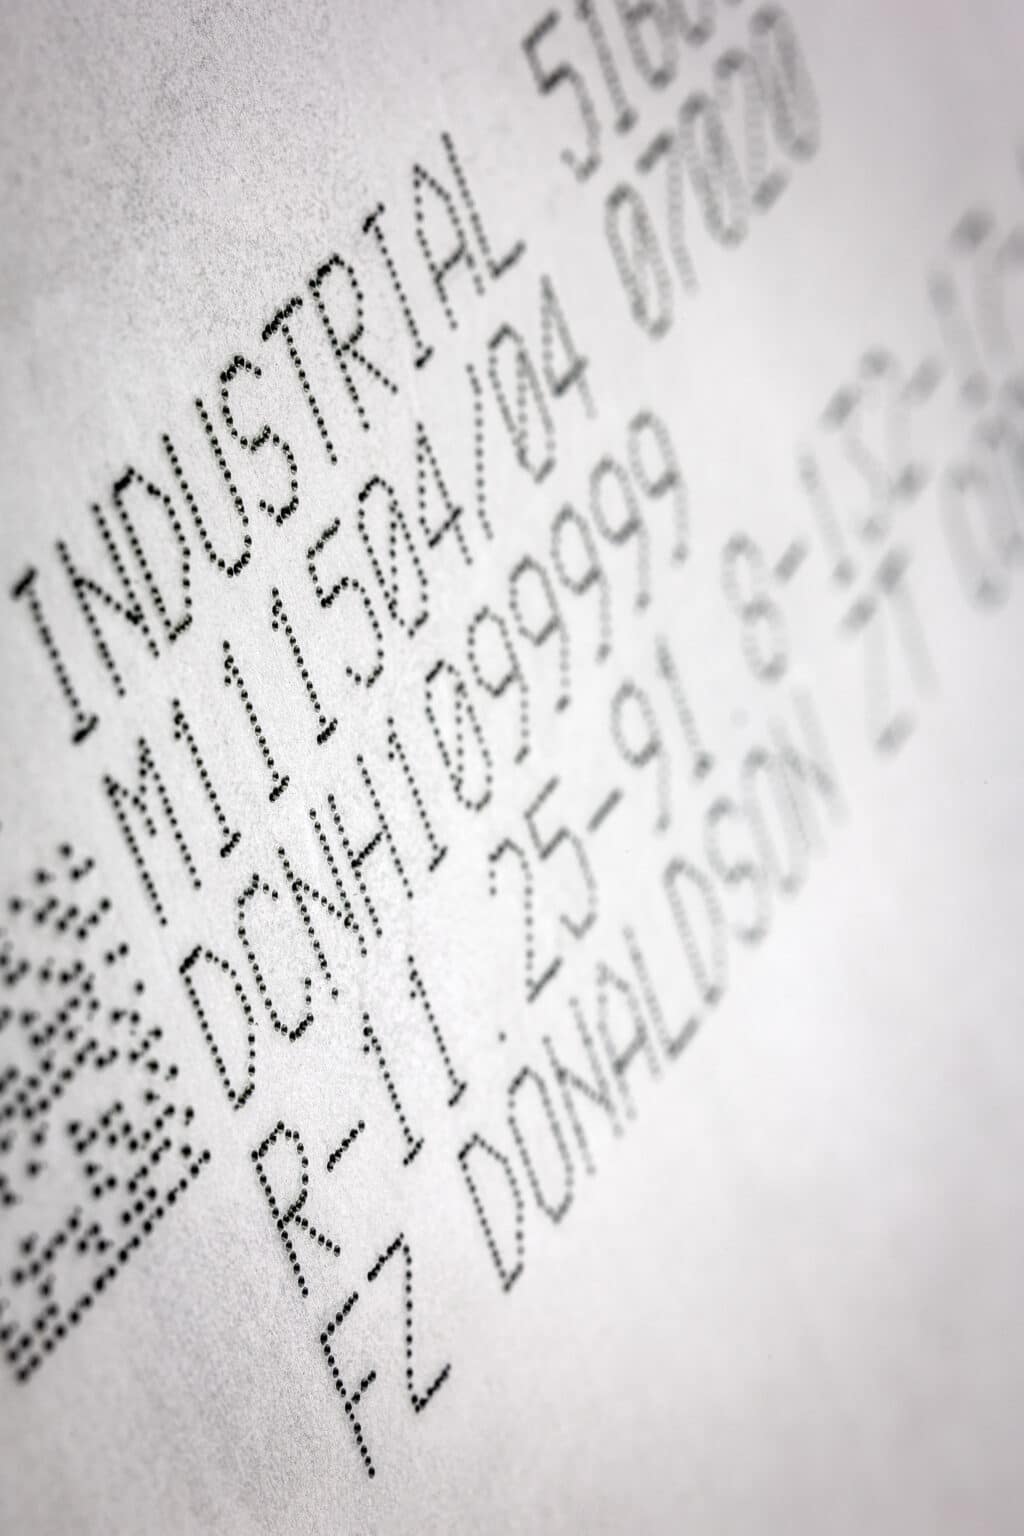 INDUSTRIAL
M111504/04 07020
DCNH1099999
R-11.25-91
FZ DONALDSON